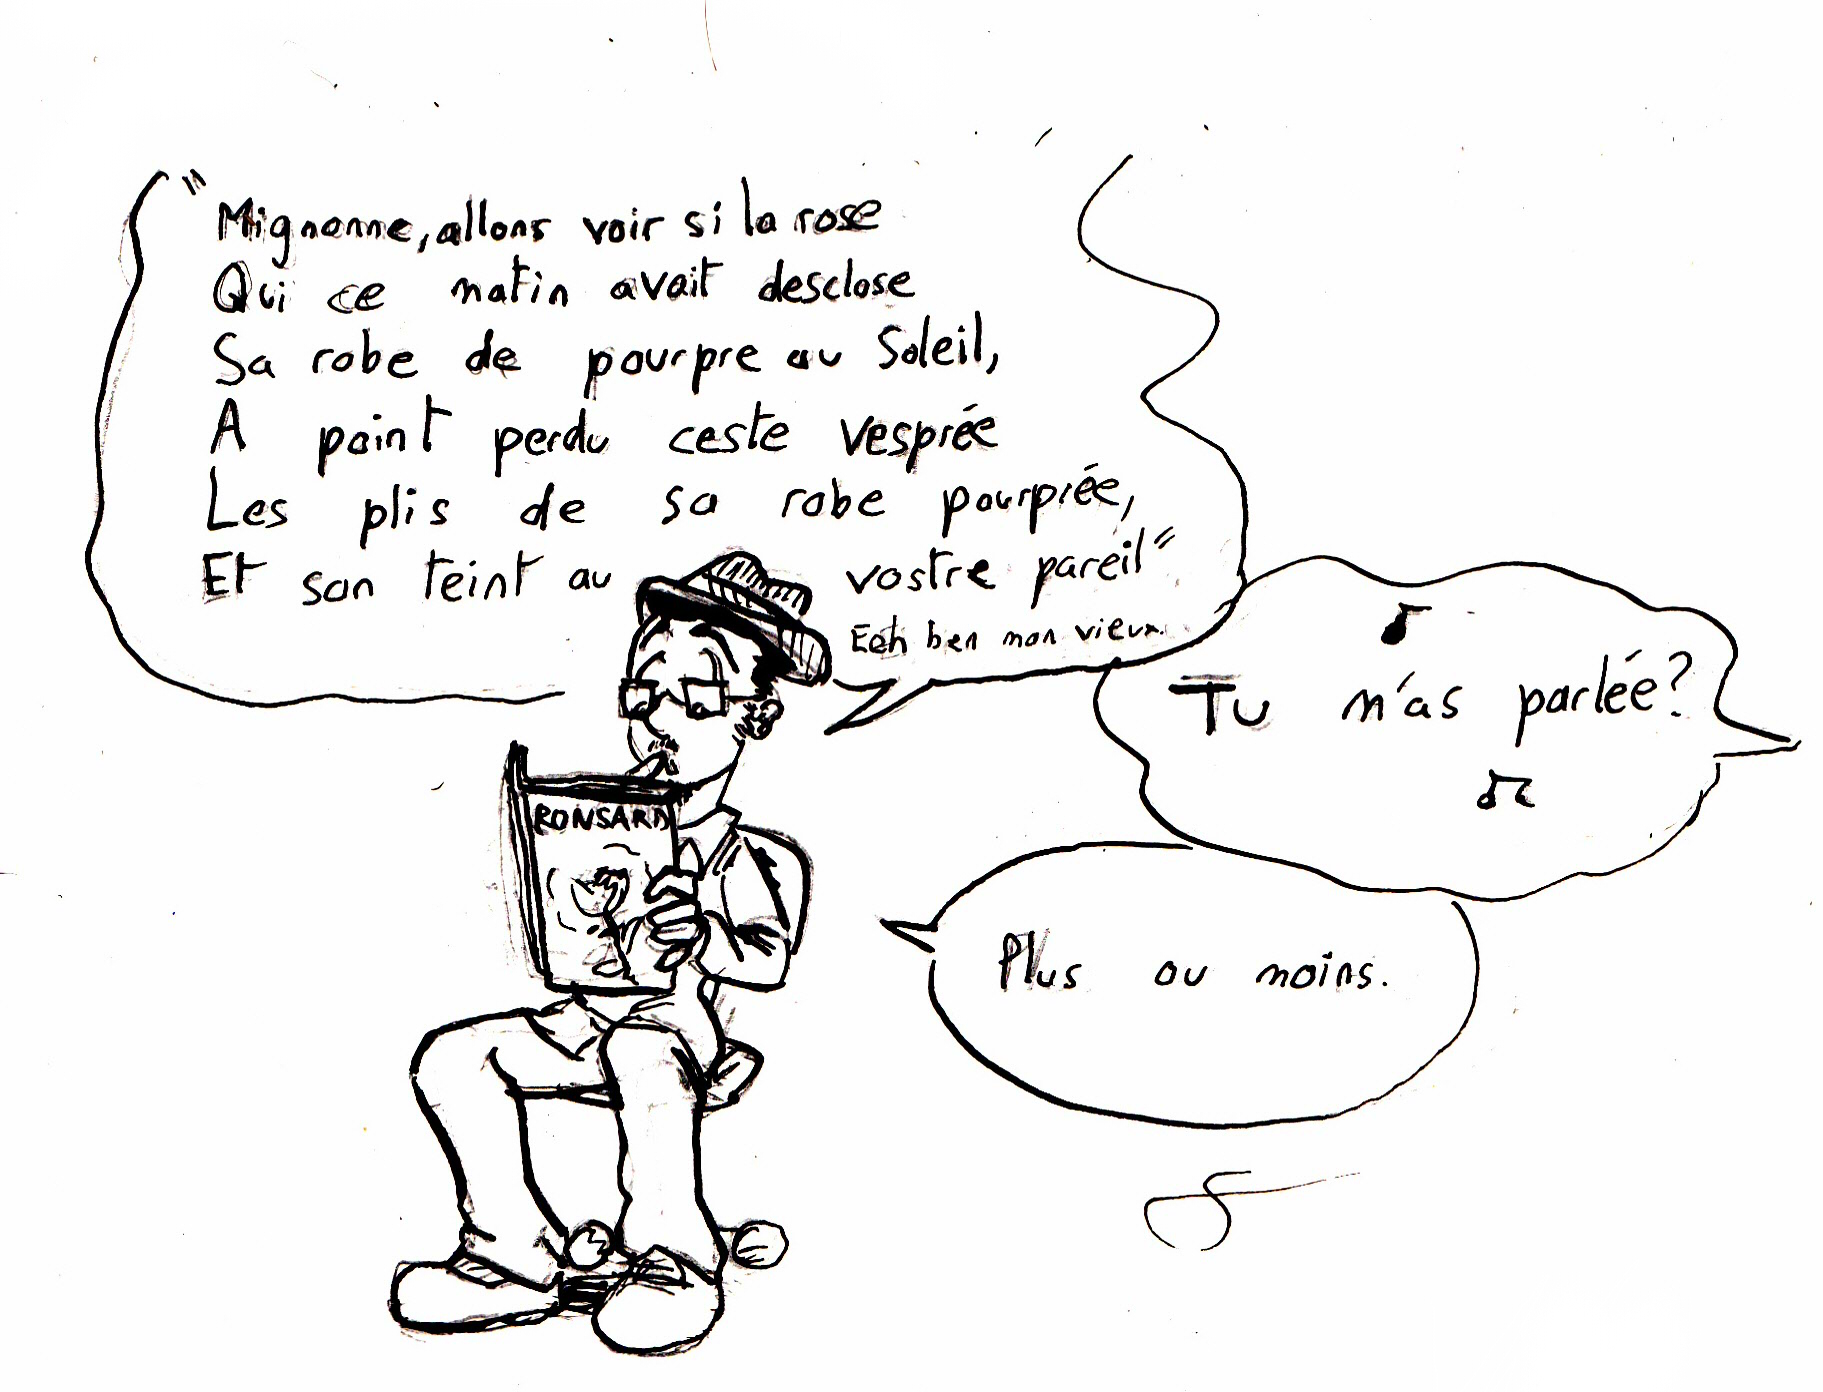 "Mignonne, allons voir si la rose
Qui ce matin avait desclose
Sa robe de pourpre au Soleil,
A point perdu ceste vesprée
Les plis de sa robe pourprée,
Et son teint au vostre pareil"
Eeh ben mon vieux.
Tu m'as parlée?
Plus ou moins.
RONSARD